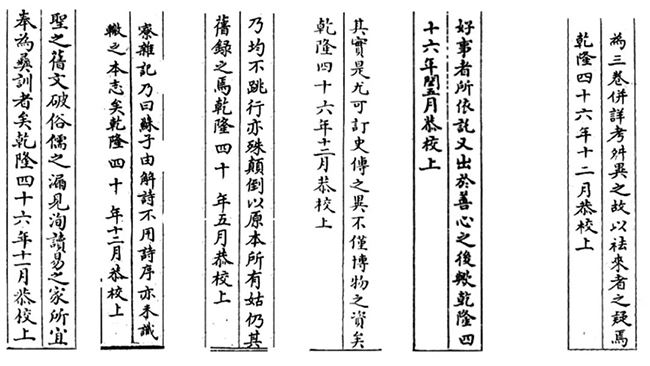 為三卷併詳考舛異之故以祛來者之疑焉
乾隆四十六年十二月恭校上
好事者所依託又出於善心之後歟乾隆四
十六年閏五月恭校上
其實是尤可訂史傳之異不僅博物之資矣
乾隆四十六年十二月恭校上
乃均不跳行亦殊顛倒以原本所有姑仍其
舊錄之焉乾隆四十 年五月恭校上
寮雜記乃曰蘇子由解詩不用詩序亦未識
轍之本志矣乾隆四十 年十二月恭校上
聖之舊文破俗儒之漏見洵讀易之家所宜
奉為彝訓者矣乾隆四十六年十二月恭校上